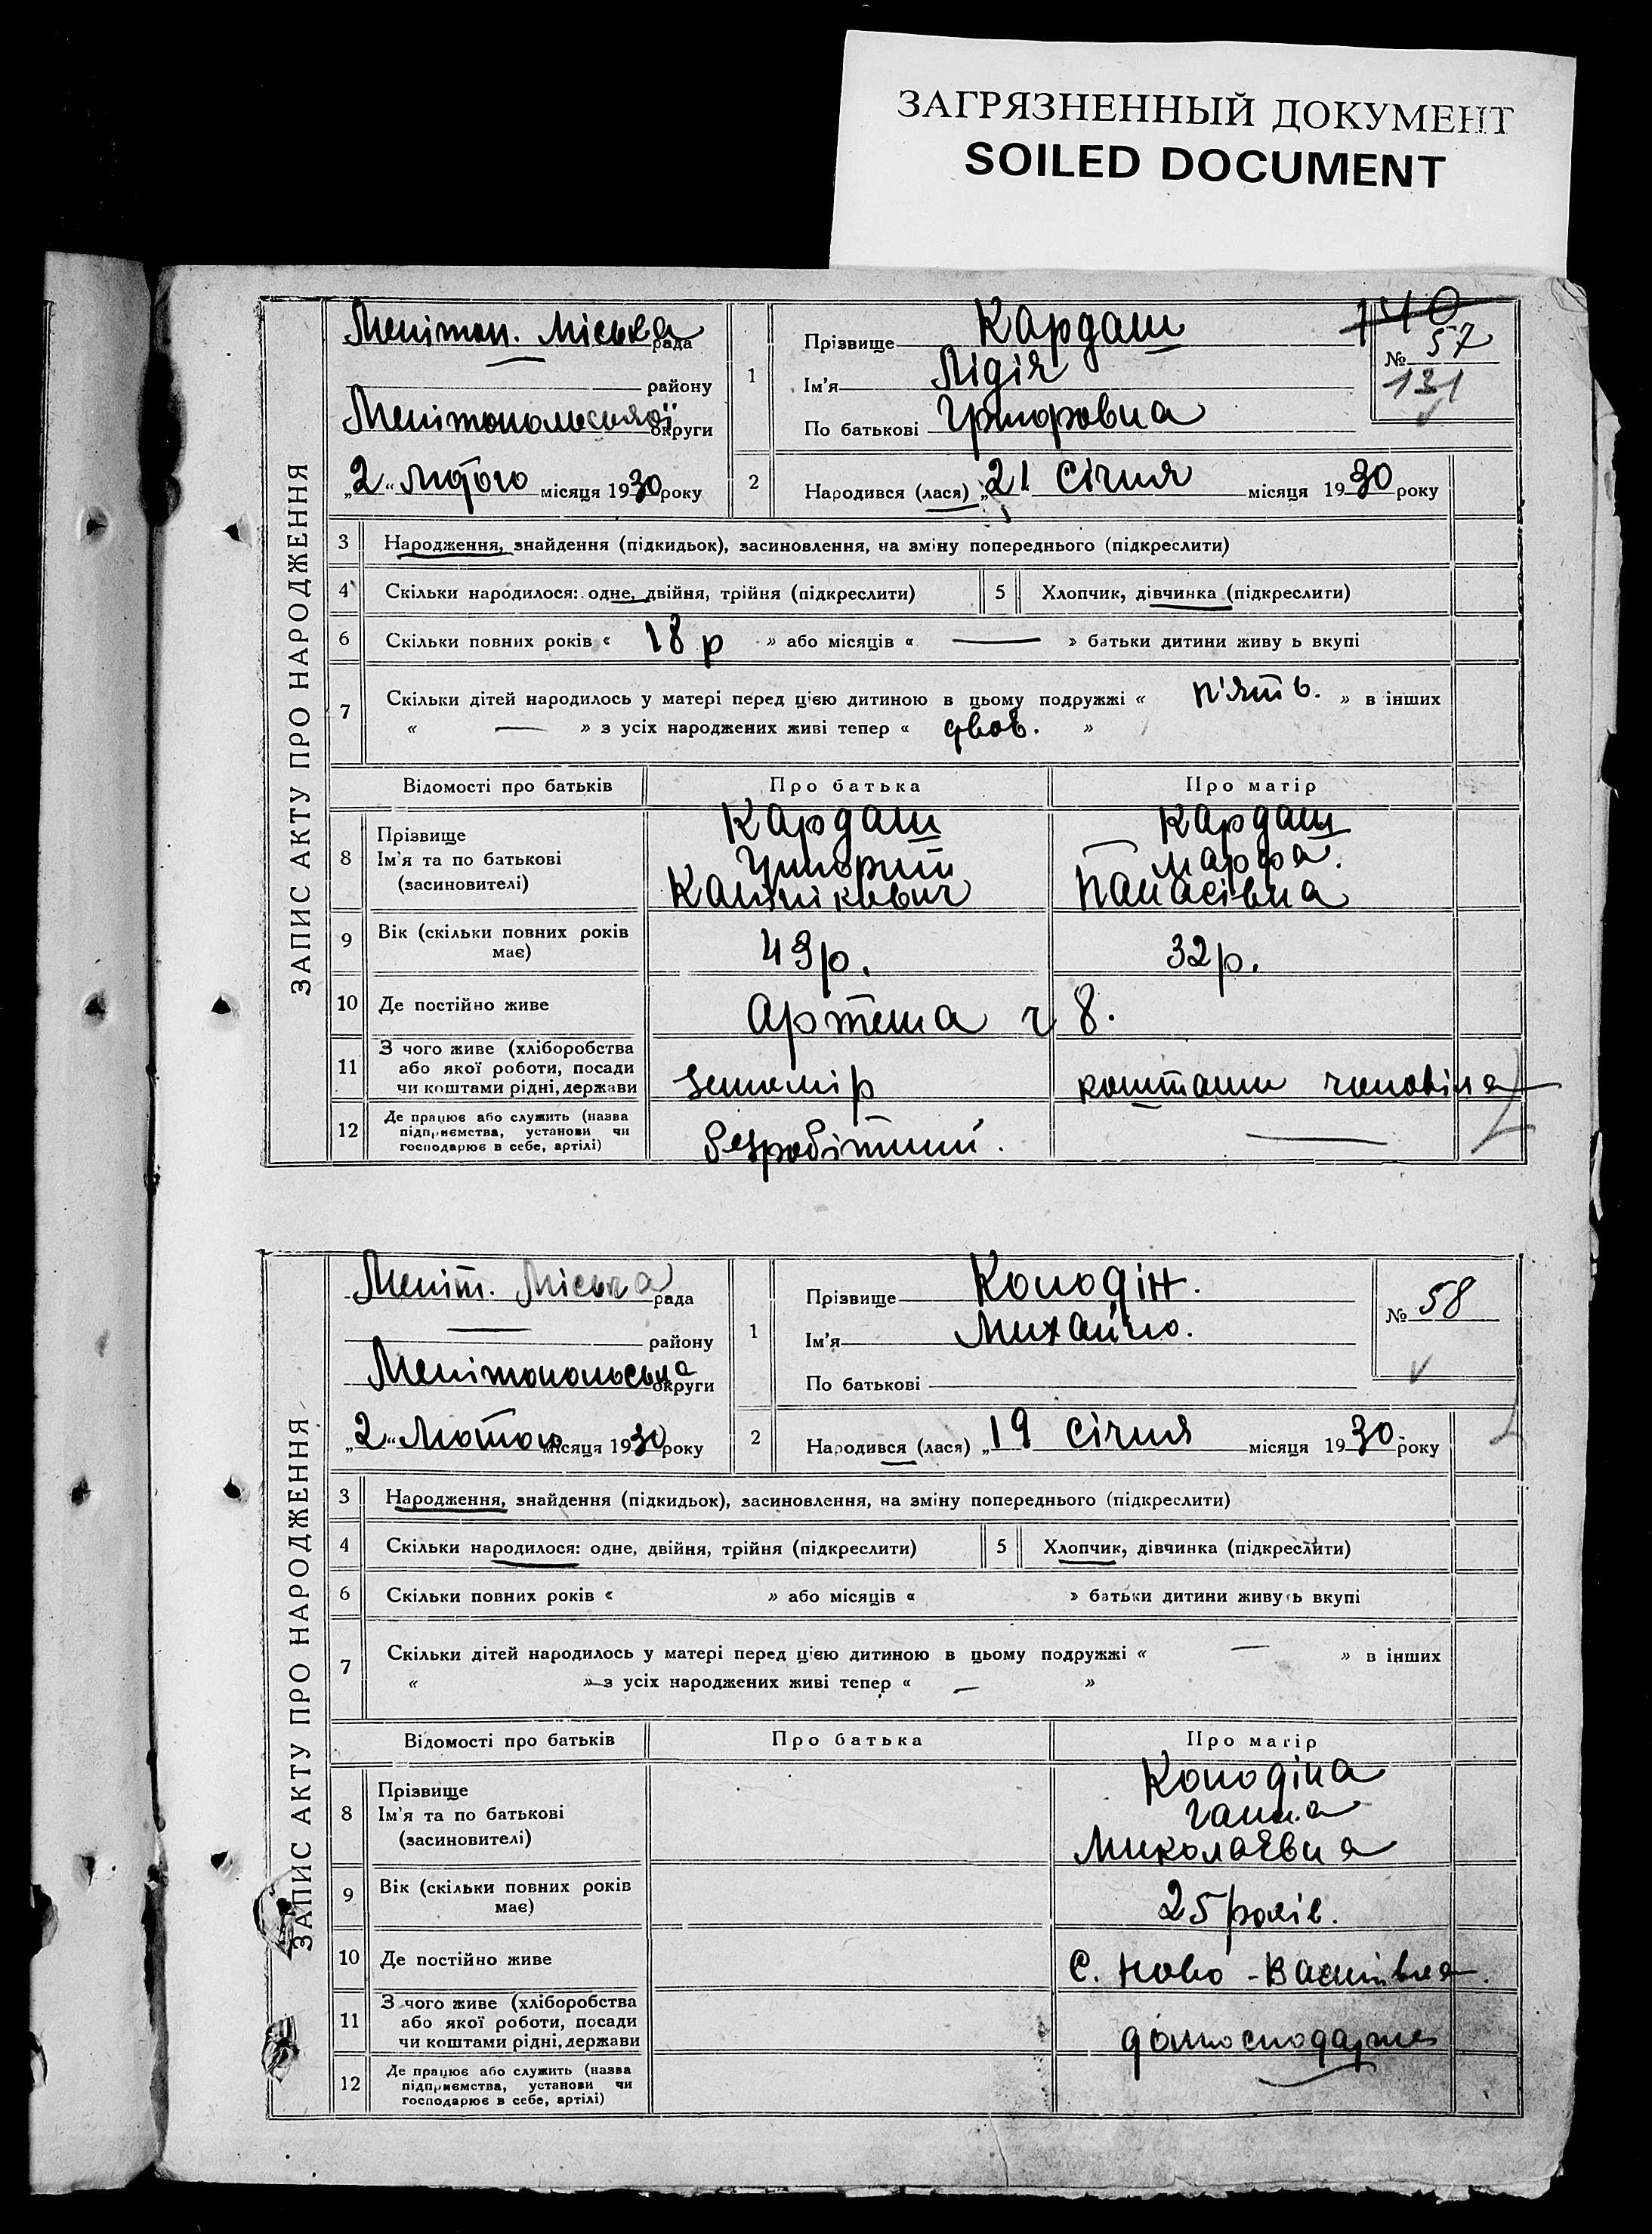 ЗАГРЯЗНЕННЫЙ ДОКУМЕНТ
SOILED DOCUMENT
ЗАПИС АКТУ ПРО НАРОДЖЕННЯ
Меліт​оп. Міська рада
району
Мелітопольської округи
„2“ лютого місяця 1930 року
1
Прізвище Кардаш
Ім'я Лідія
По батькові Григоровна
140
№ 57
131
2
Народився (лася) „21 Січня місяця 1930 року
3 Народження, знайдення (підкидьок), засиновлення, на зміну попереднього (підкреслити)
4 Скільки народилося: одне, двійня, трійня (підкреслити)
5 Хлопчик, дівчинка (підкреслити)
6 Скільки повних років « 18 р » або місяців « — » батьки дитини живу ь вкупі
7 Скільки дітей народилось у матері перед цією дитиною в цьому подружжі « п'ять. » в інших
« — » з усіх народжених живі тепер « двоє. »
Відомості про батьків Про батька Про матір
8 Прізвище Кардаш Кардаш
Ім'я та по батькові Григорій Марфа.
(засновителі) Панасівна
9 Вік (скільки повних років має) 49р. 32р.
10 Де постійно живе Артема ч 8.
11 З чого живе (хліборобства
або якої роботи, посади
чи коштами рідні, держави землемір коштами чоловіка
12 Де працює або служить (назва
підприємства, установи чи
господарює в себе, артілі) безробітний. —
ЗАПИС АКТУ ПРО НАРОДЖЕННЯ
Меліт. Міська рада
— району
Мелітопольська округи
„2“ Лютого місяця 1930 року
1
Прізвище Колодін.
Ім'я Михайло.
По батькові
№ 58
2
Народився (лася) „19 Січня місяця 1930 року
3 Народження, знайдення (підкидьок), засиновлення, на зміну попереднього (підкреслити)
4 Скільки народилося: одне, двійня, трійня (підкреслити)
5 Хлопчик, дівчинка (підкреслити)
6 Скільки повних років « » або місяців « » батьки дитини живуть вкупі
7 Скільки дітей народилось у матері перед цією дитиною в цьому подружжі « — » в інших
« » з усіх народжених живі тепер « — »
Відомості про батьків Про батька Про матір
8 Прізвище Колодіна
Ім'я та по батькові Ганна
(засиновителі) Миколаєвна
9 Вік (скільки повних років має) 25 років.
10 Де постійно живе С. Ново-Василівка.
11 З чого живе (хліборобства
або якої роботи, посади
чи коштами рідні, держави
12 Де працює або служить (назва
підприємства, установи чи
господарює в себе, артілі)